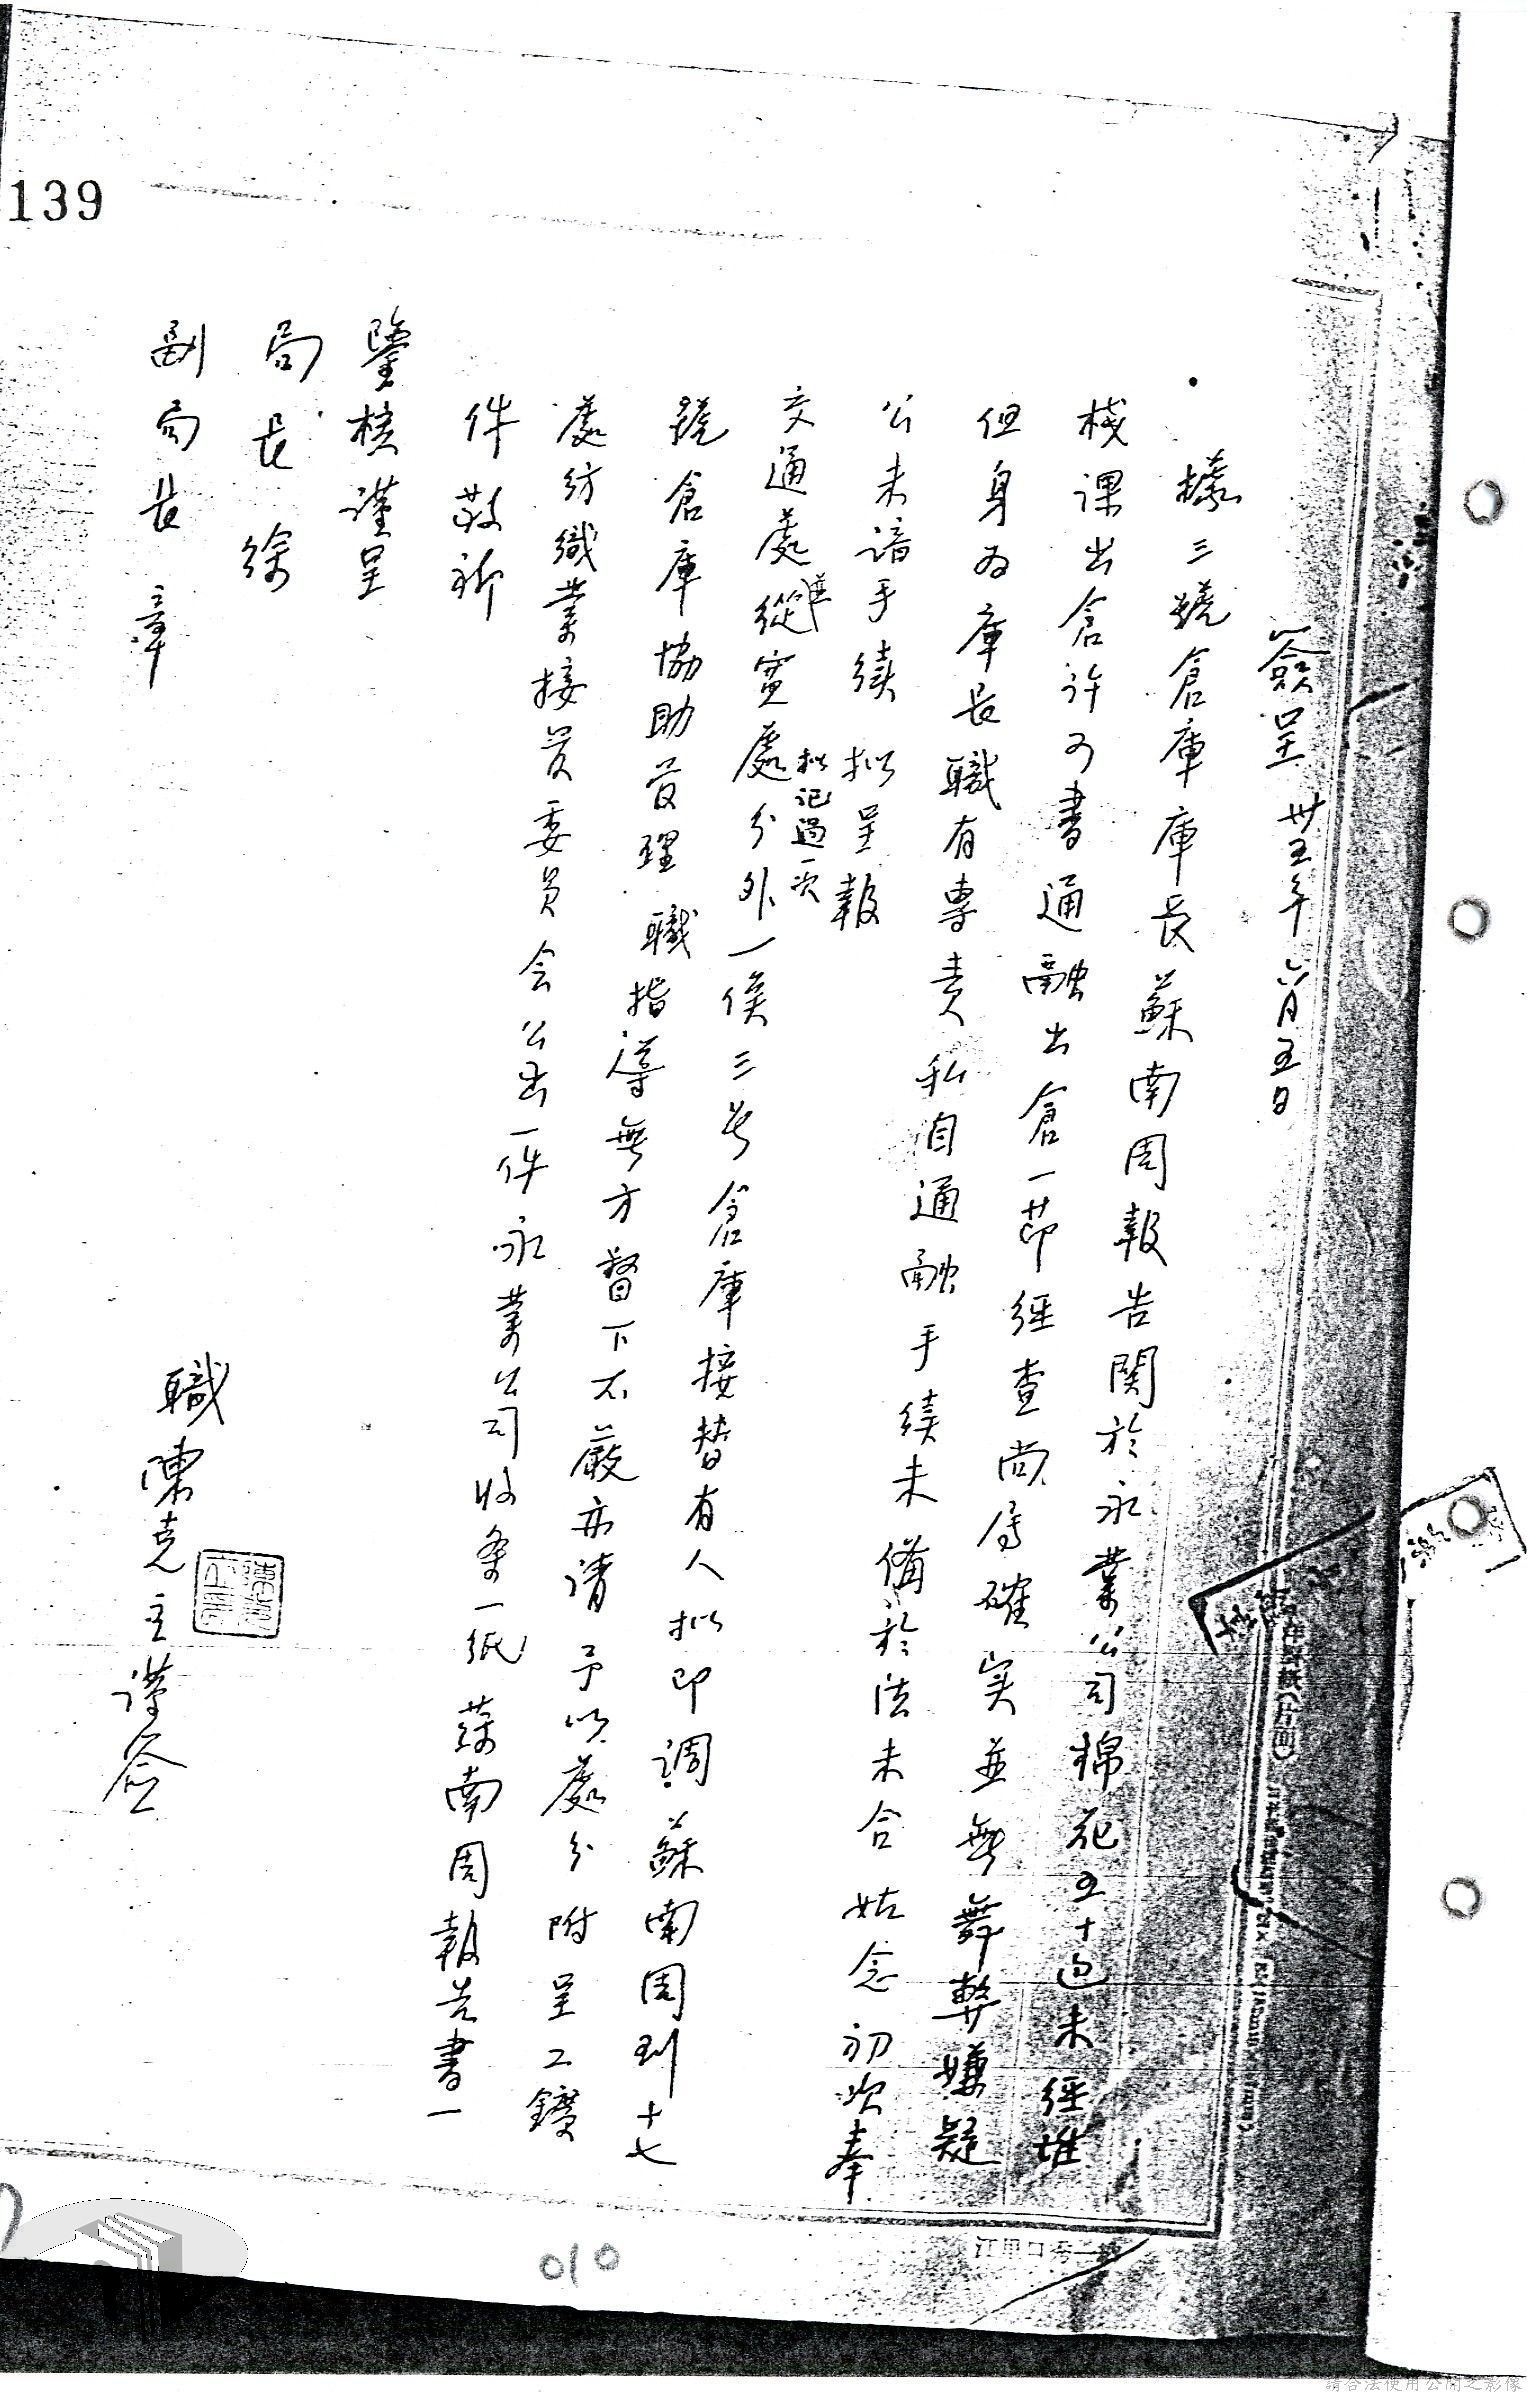 139
簽呈 卅五年六月五日
據三號倉庫庫長蘇南周報告關於永業公司棉花五十包未經堆
棧課出倉許可書通融出倉一節經查尚屬確实並無舞弊嫌疑
但身为庫長職有專責私自通融手續未備於法未合姑念初次奉
公未諳手續拟呈報
交通處從寬處分外一俟三号倉庫接替有人拟即調蘇南周到十七
拟記過一次
號倉庫協助管理職指導無方督下不嚴亦請予以處分附呈工鑛
處紡織業接管委員会公出一件永業公司收条一紙蘇南周報告書一
件敬祈
鑒核謹呈
局長 徐
副局長 章
職陳克立謹簽
010
請合法使用公開之影像